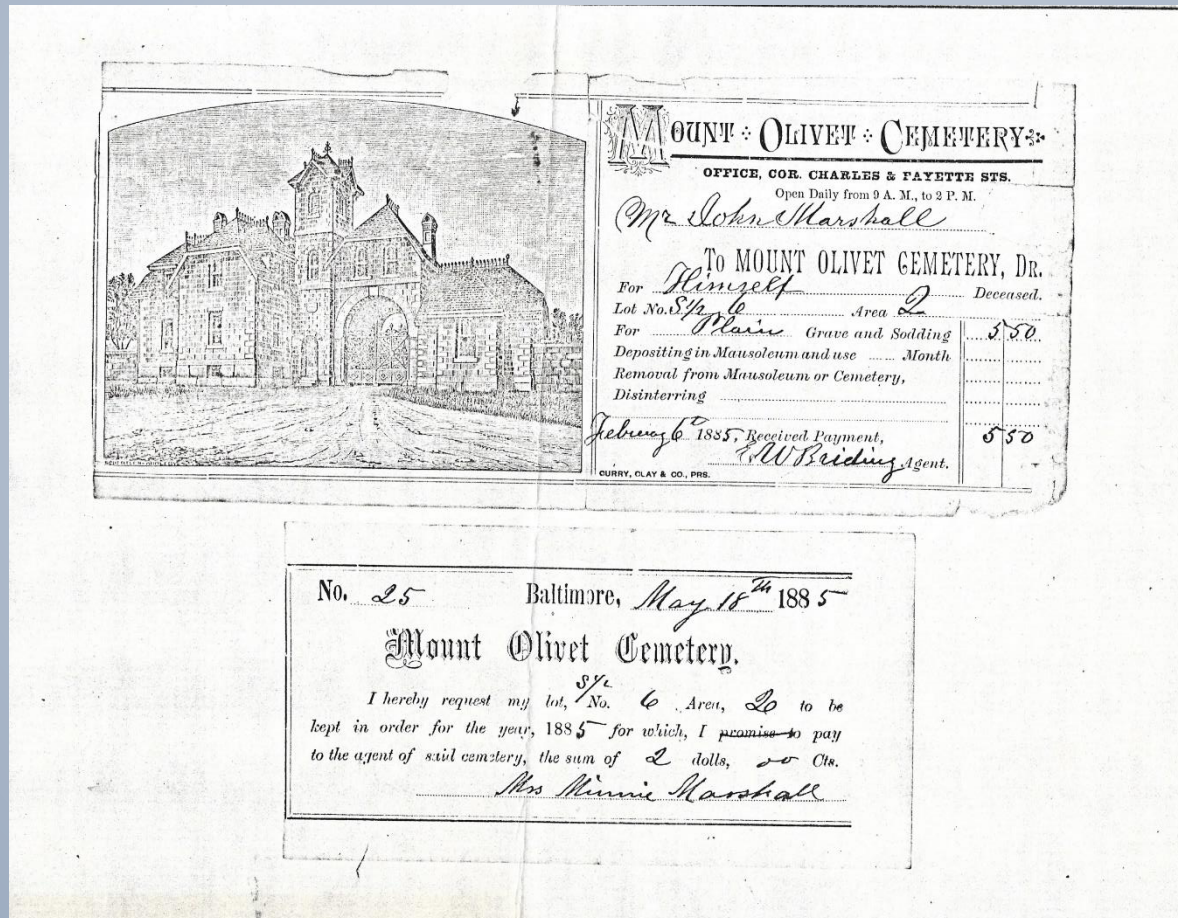 MOUNT OLIVET CEMETERY
OFFICE, COR. CHARLES & FAYETTE STS.
Open Daily from 9 A. M., to 2 P. M.
Mr John Marshall
To MOUNT OLIVET CEMETERY, DR.
For Himself Deceased.
Lot No. S 1/2 6 Area 2
For Plain Grave and Sodding 5 50
Depositing in Mausoleum and use Month
Removal from Mausoleum or Cemetery,
Disinterring
1885, Received Payment, 5 50
Agent.
CURRY, CLAY & CO., PRS.
No. 25 Baltimore, May 18th 1885
Mount Olivet Cemetery.
S 1/2
I hereby request my lot, No. 6 Area, to be
kept in order for the year, 1885 for which, I promise to pay
to the agent of said cemetery, the sum of 2 dolls, 00 Cts.
Mrs Minnie Marshall